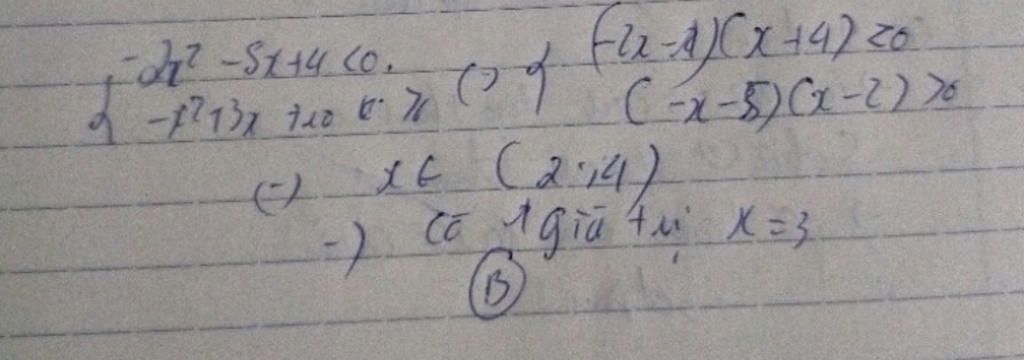 { -2x² -5x+4 <0. (=) { (-2x-1)(x+4) <0
-x²+3x+10 > (-x-5)(x-2) >0
(=) x∈ (2;4)
=) có 1 giá trị x=3
B